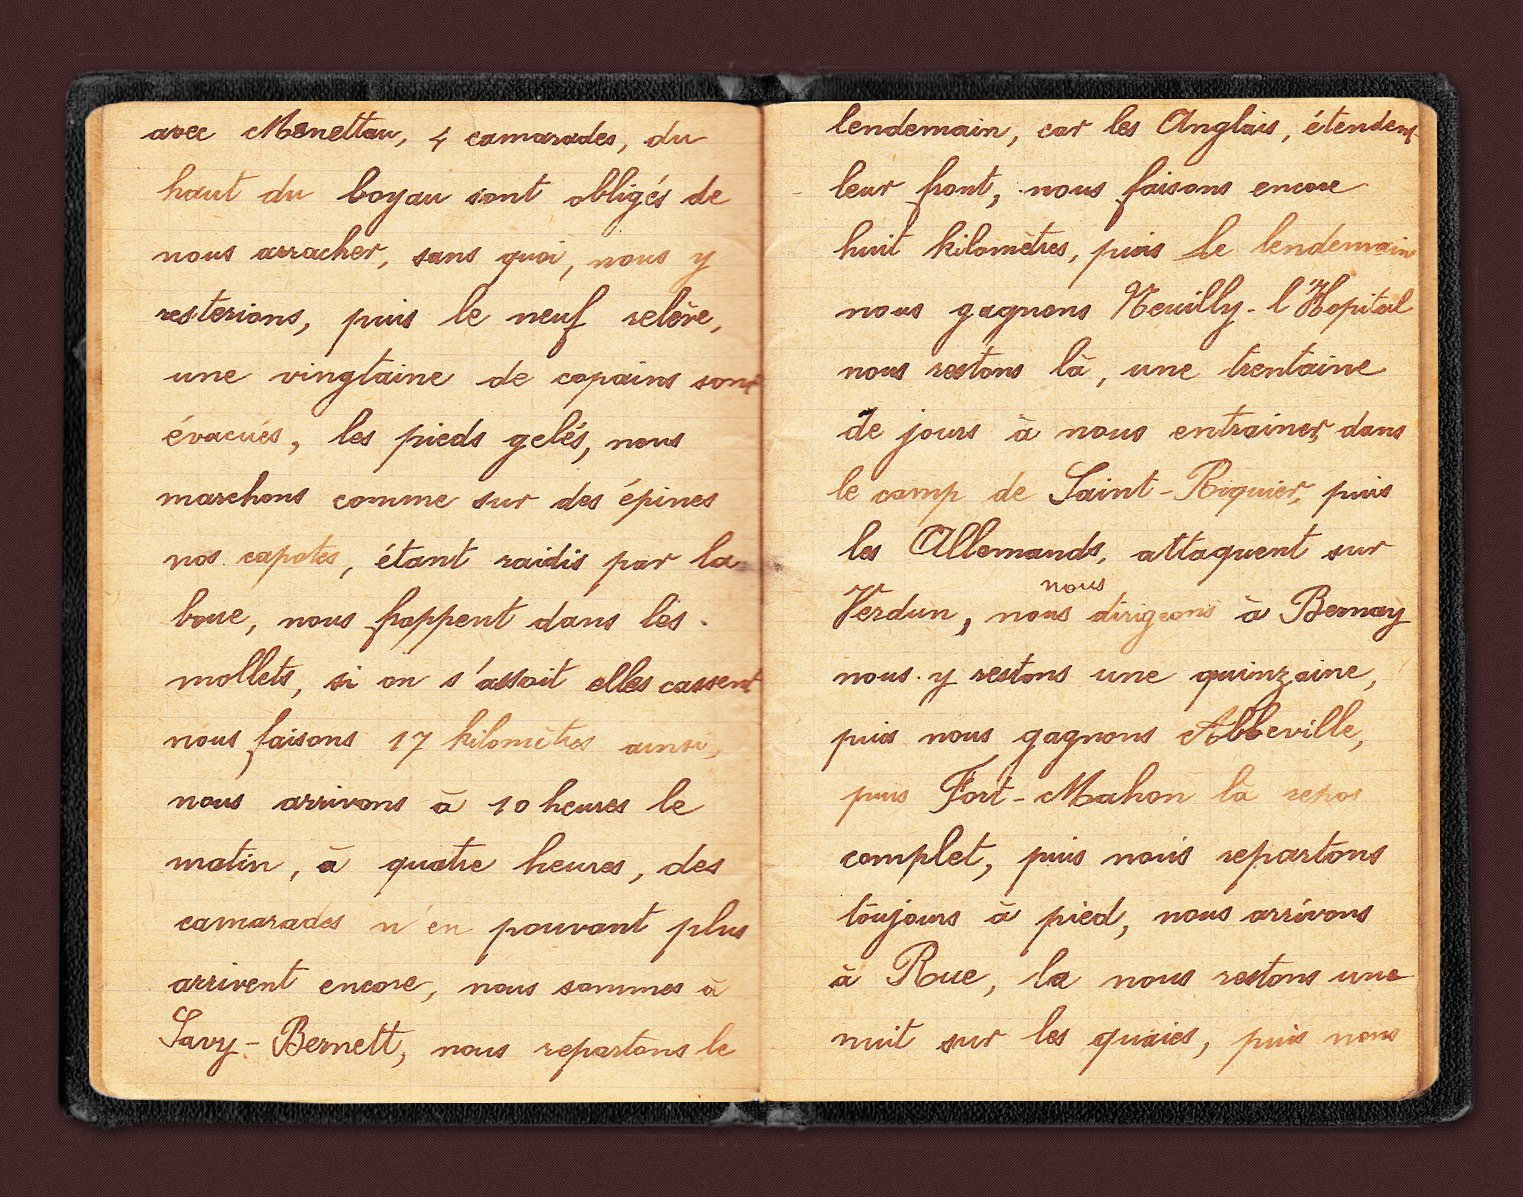 avec Menettau, 4 camarades, du
haut du boyau sont obligés de
nous arracher, sans quoi, nous y
resterions, puis le neuf relève,
une vingtaine de copains sont
évacués, les pieds gelés, nous
marchons comme sur des épines
nos capotes, étant raidis par la
boue, nous frappent dans les
mollets, si on s'assoit elles cassent
nous faisons 17 kilomètres ainsi,
nous arrivons à 10 heures le
matin, à quatre heures, des
camarades n'en pouvant plus
arrivent encore, nous sommes à
Savy-Bernett, nous repartons le
lendemain, car les Anglais, étendent
leur front, nous faisons encore
huit kilomètres, puis le lendemain
nous gagnons Neuilly-l'Hopital
nous restons là, une trentaine
de jours à nous entrainer, dans
le camp de Saint-Riquier, puis
les Allemands, attaquent sur
nous
Verdun, nous dirigeons à Bernay
nous y restons une quinzaine,
puis nous gagnons Abbeville,
puis Fort-Mahon la repos
complet, puis nous repartons
toujours à pied, nous arrivons
à Rue, la nous restons une
nuit sur les quaies, puis nous